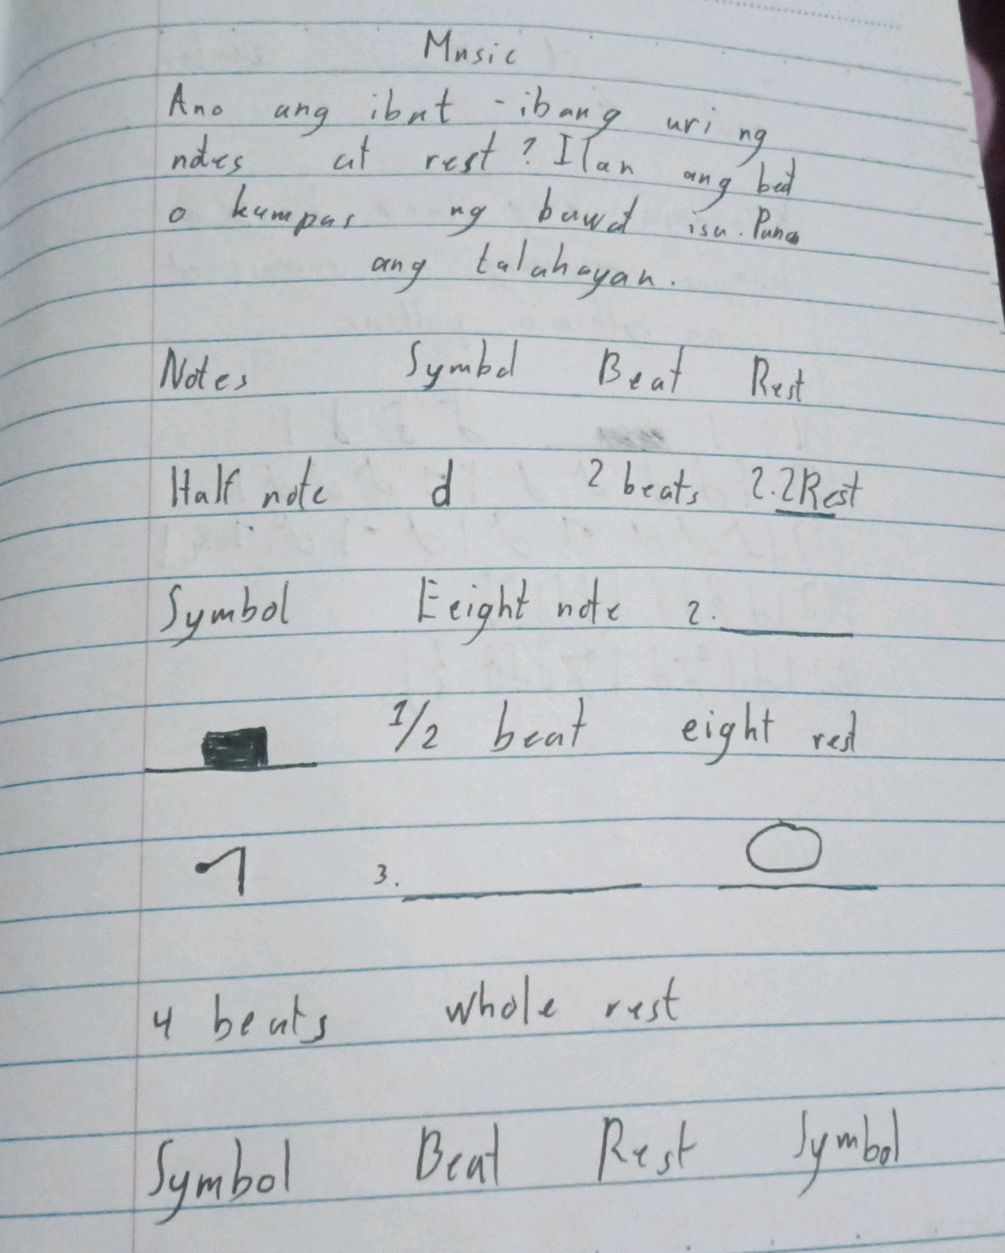 Music
Ano ang ibat-ibang uri ng
notes at rest? Ilan ang beat
o kumpas ng bawat isa. Puna
ang talahayan.
Notes Symbol Beat Rest
Half note d 2 beats 2.2Rest
Symbol Eeight note 2.
1/2 beat eight rest
3.
4 beats whole rest
Symbol Beat Rest Symbol